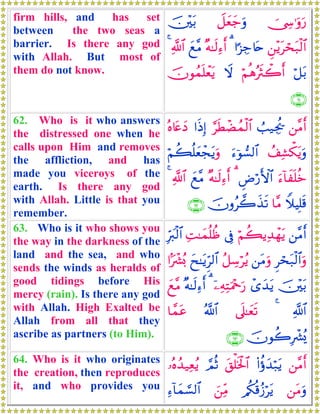 firm hills, and has set
between the two seas a
barrier. Is there any god
with Allah. But most of
them do not know.
رَوَٰسِيَ وَجَعَلَ بَيۡنَ
ٱلۡبَحۡرَيۡنِ حَاجِزًاۗ أَءِلَٰهٞ مَّعَ ٱللَّهِۚ
بَلۡ أَكۡثَرُهُمۡ لَا يَعۡلَمُونَ
٦١
62. Who is it who answers
the distressed one when he
calls upon Him and removes
the affliction, and has
made you viceroys of the
earth. Is there any god
with Allah. Little is that you
remember.
أَمَّن يُجِيبُ ٱلۡمُضۡطَرَّ إِذَا دَعَاهُ
وَيَكۡشِفُ ٱلسُّوٓءَ وَيَجۡعَلُكُمۡ
خُلَفَآءَ ٱلۡأَرۡضِۗ أَءِلَٰهٞ مَّعَ ٱللَّهِۚ
قَلِيلٗا مَّا تَذَكَّرُونَ ٦٢
63. Who is it who shows you
the way in the darkness of the
land and the sea, and who
sends the winds as heralds of
good tidings before His
mercy (rain). Is there any god
with Allah. High Exalted be
Allah from all that they
ascribe as partners (to Him).
أَمَّن يَهۡدِيكُمۡ فِي ظُلُمَٰتِ ٱلۡبَرِّ
وَٱلۡبَحۡرِ وَمَن يُرۡسِلُ ٱلرِّيَٰحَ بُشۡرَۢا
بَيۡنَ يَدَيۡ رَحۡمَتِهِۦٓۗ أَءِلَٰهٞ مَّعَ
ٱللَّهِۚ تَعَٰلَى ٱللَّهُ عَمَّا
يُشۡرِكُونَ ٦٣
64. Who is it who originates
the creation, then reproduces
it, and who provides you
أَمَّن يَبۡدَؤُاْ ٱلۡخَلۡقَ ثُمَّ يُعِيدُهُۥ
وَمَن يَرۡزُقُكُم مِّنَ ٱلسَّمَآءِ